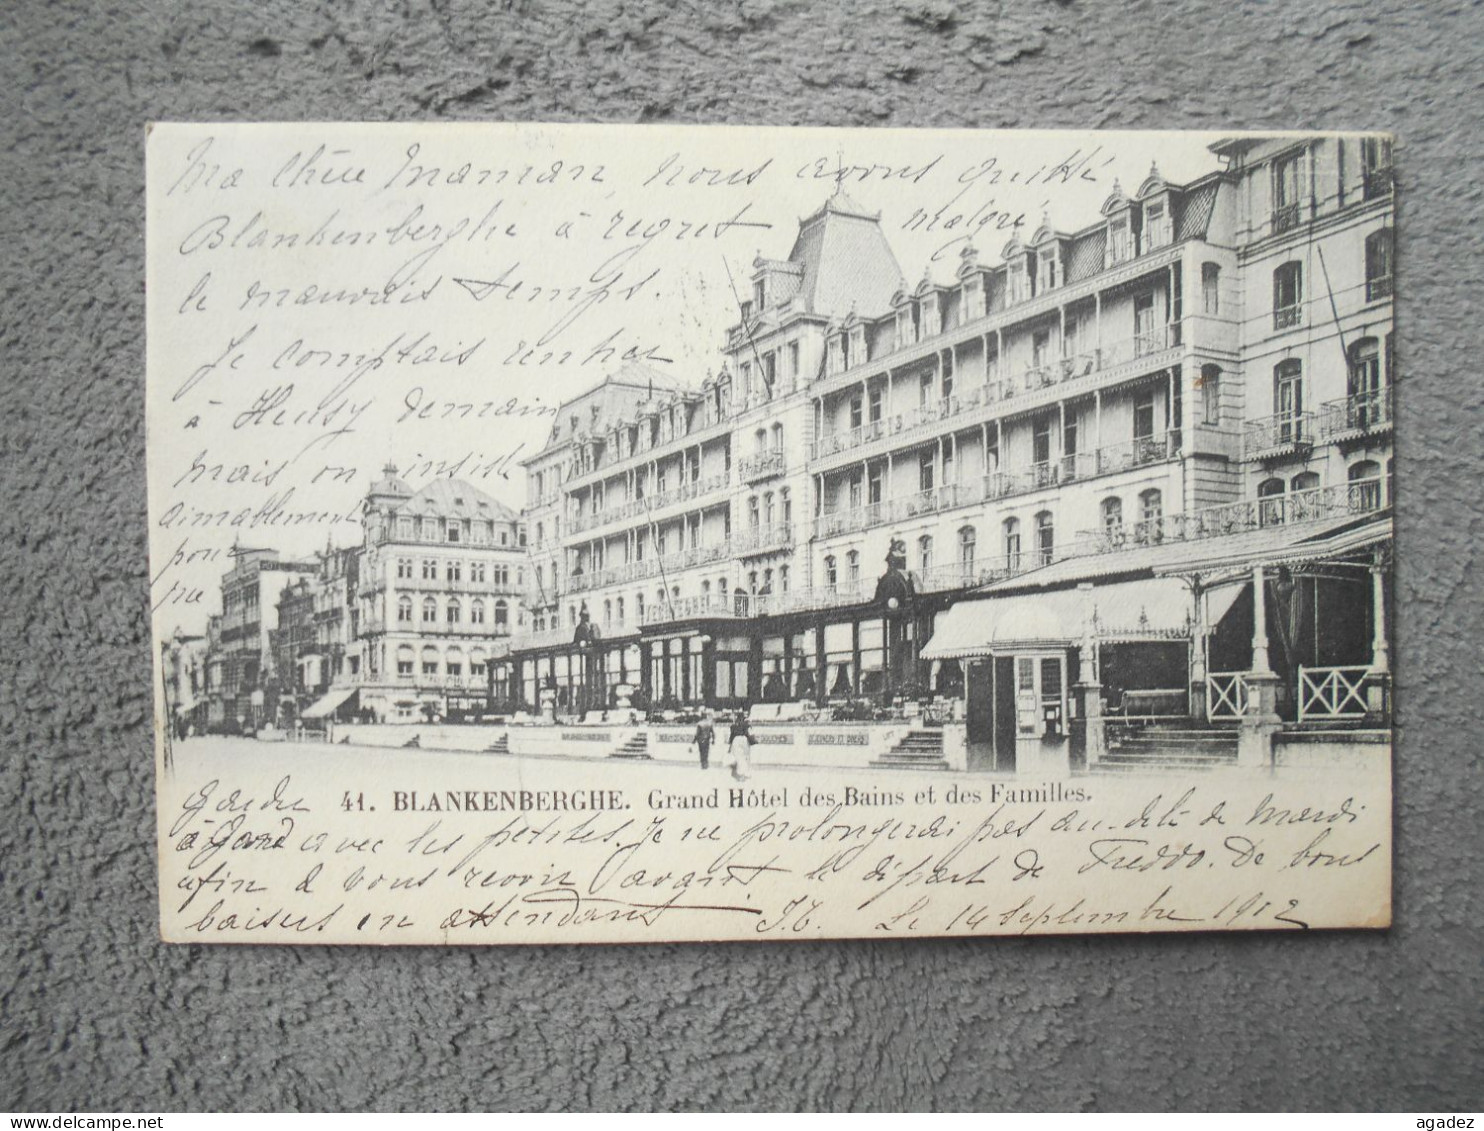 Ma Chère Maman, nous avons quitté
Blankenberghe à regret malgré
le mauvais temps.
Je comptais rentrer
à Heusy demain
mais on insiste
aimablement
pour
me
garder 41. BLANKENBERGHE. Grand Hôtel des Bains et des Familles.
à Gand avec les petites. Je ne prolongerai pas au-delà de Mardi
afin de vous revoir avant le départ de Freddo. De bons
baisers en attendant J.C. Le 14 Septembre 1912
agadez